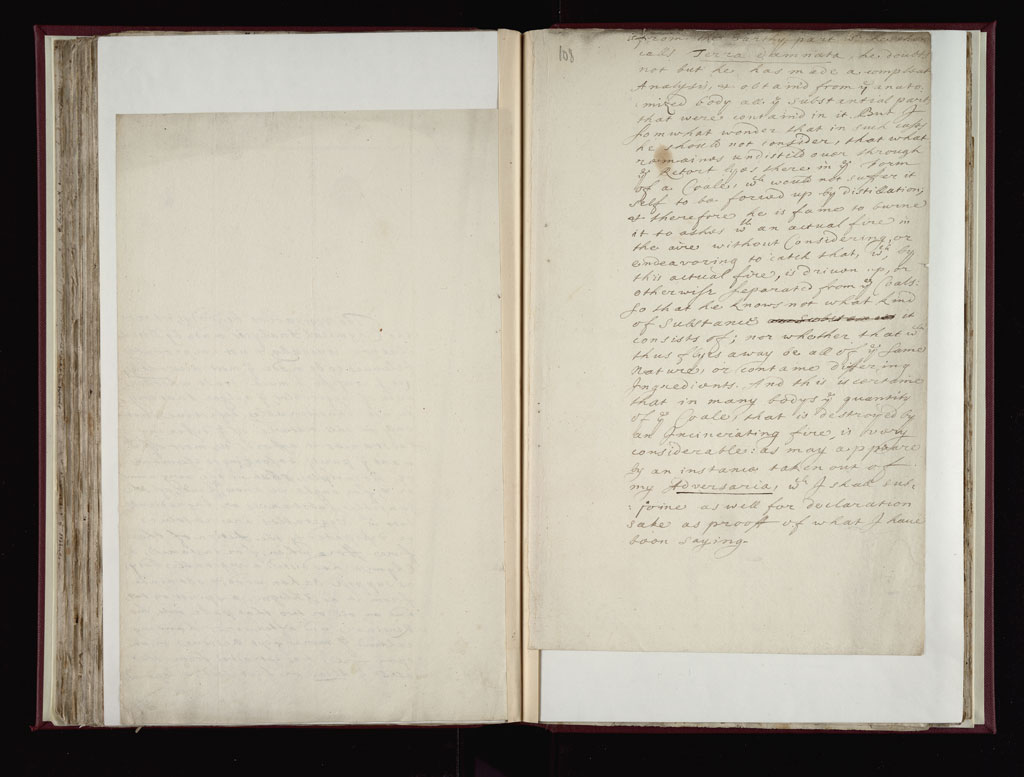 108
from the earthy part wch he
calls Terra damnata, he doubts
not but he has made a compleat
Analysis, & obtain'd from ye anato-
:mized body all ye substantial parts
that were contain'd in it. But I
somwhat wonder that in such cases
he should not consider, that what
remaines undistill'd over through
ye Retort lyes there in ye form
of a Coale, wch would not suffer it
self to be forced up by distillation;
& therefore he is faine to burne
it to ashes wth an actual fire in
the aire without Considering, or
endeavoring to catch that, wch, by
this actual fire, is driven up, or
otherwise separated from ye Coals.
So that he knows not what kind
of substance it
consists of; nor whether that wch
thus flyes away be all of ye same
Nature, or containe differing
Ingredients. And this is certaine
that in many bodys ye quantity
of ye Coale, that is destroyed by
an Incinerating fire, is very
considerable: as may appeare
by an instance taken out of
my Adversaria, wch I shall sub:
:joine as well for declaration
sake as proofe of what I have
been saying.